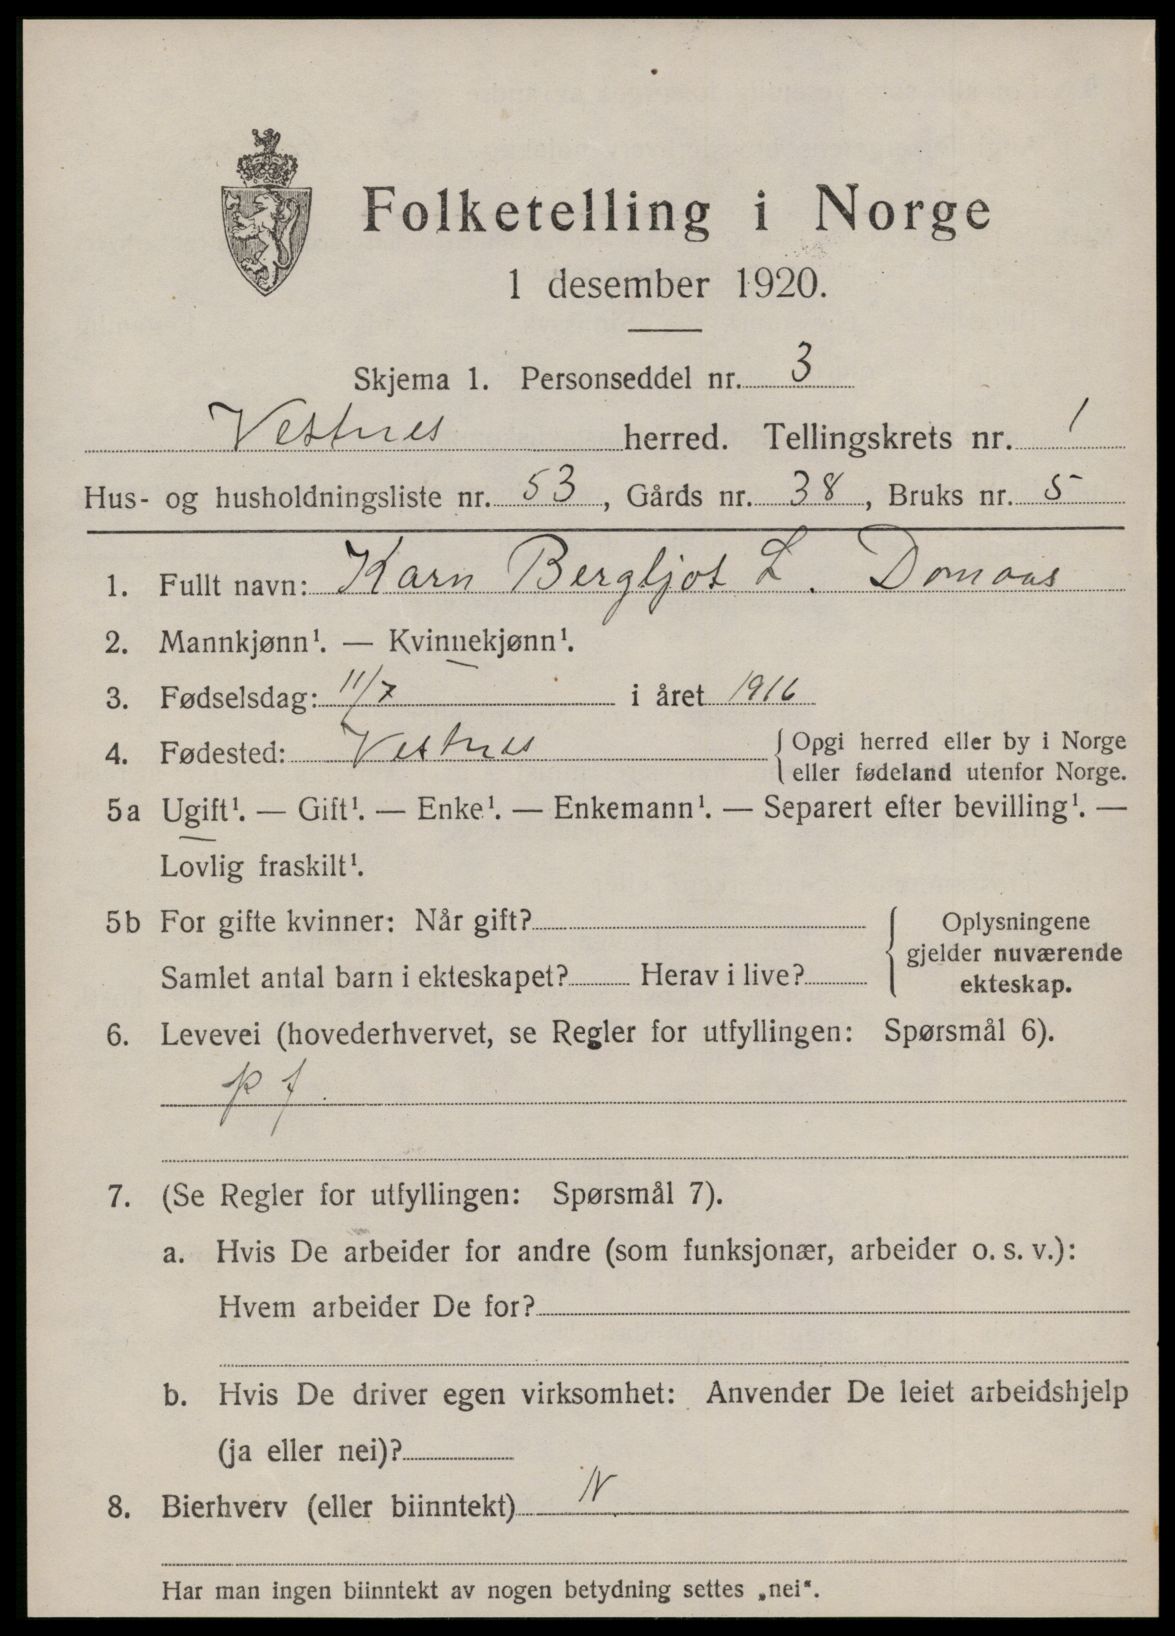 Folketelling i Norge
1 desember 1920.
Skjema 1. Personseddel nr. 3
Vestnes herred. Tellingskrets nr. 1
Hus- og husholdningsliste nr. 53, Gårds nr. 38, Bruks nr. 5
1. Fullt navn: Karn Bergljot L. Domaas
2. Mannkjønn¹. — Kvinnekjønn¹.
3. Fødselsdag: 11/7 i året 1916
4. Fødested: Vestnes {Opgi herred eller by i Norge
eller fødeland utenfor Norge.
5a Ugift¹. — Gift¹. — Enke¹. — Enkemann¹. — Separert efter bevilling¹. —
Lovlig fraskilt¹.
5b For gifte kvinner: Når gift?
Samlet antal barn i ekteskapet? Herav i live?
{Oplysningene
gjelder nuværende
ekteskap.
6. Levevei (hovederhvervet, se Regler for utfyllingen: Spørsmål 6).
p f.
7. (Se Regler for utfyllingen: Spørsmål 7).
a. Hvis De arbeider for andre (som funksjonær, arbeider o. s. v.):
Hvem arbeider De for?
b. Hvis De driver egen virksomhet: Anvender De leiet arbeidshjelp
(ja eller nei)?
8. Bierhverv (eller biinntekt) N
Har man ingen biinntekt av nogen betydning settes „nei“.